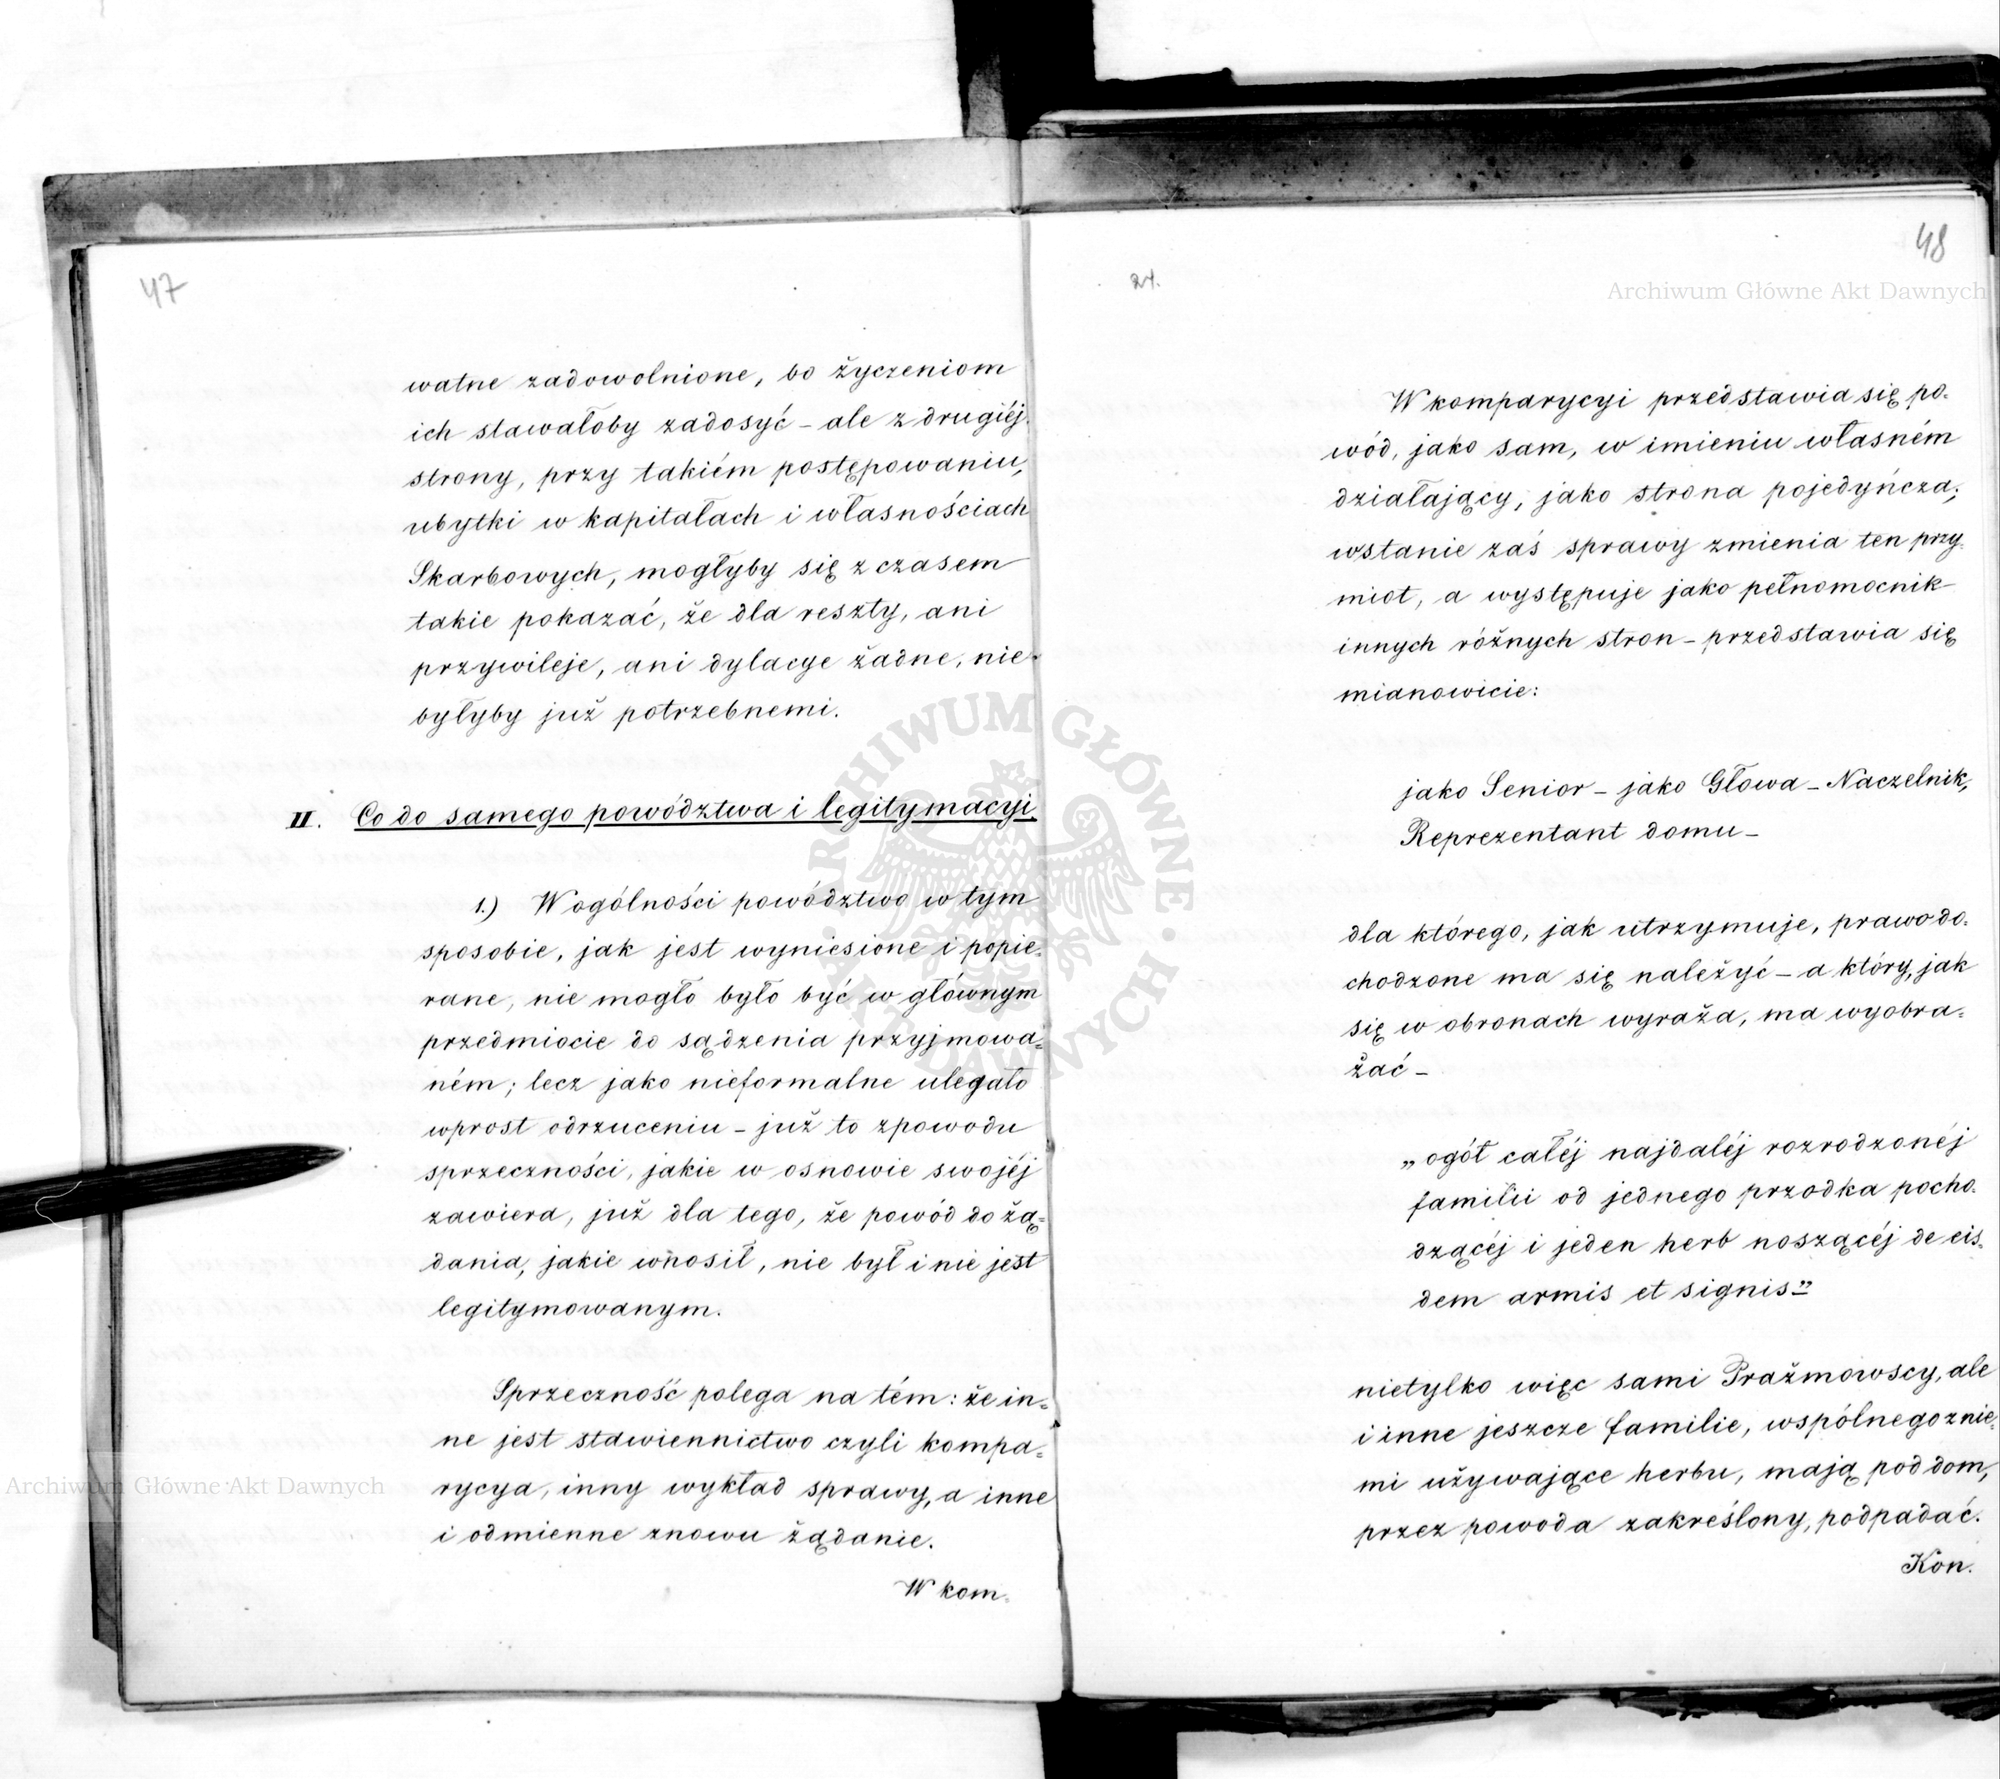 47
watne zadowolnione, bo życzeniom
ich stawałoby zadosyć – ale z drugiéj
strony, przy takiém postępowaniu,
ubytki w kapitałach i własnościach
Skarbowych, mogłyby się z czasem
takie pokazać, że dla reszty, ani
przywileje, ani dylacye żadne, nie-
byłyby już potrzebnemi.
II. Co do samego powództwa i legitymacyi.
1.) W ogólności powództwo w tym
sposobie, jak jest wyniesione i popie=
rane, nie mogło było być w głównym
przedmiocie do sądzenia przyjmowa=
ném; lecz jako nieformalne ulegało
wprost odrzuceniu – już to z powodu
sprzeczności, jakie w osnowie swojéj
zawiera, już dla tego, że powód do żą=
dania, jakie wnosił, nie był i nie jest
legitymowanym.
Sprzeczność polega na tém: że in=
ne jest stawiennictwo czyli kompa=
rycya, inny wykład sprawy, a inne
i odmienne znowu żądanie.
W kom=
24.
48
Archiwum Główne Akt Dawnych
W komparycyi przedstawia się po=
wód, jako sam, w imieniu własném
działający, jako strona pojedyńcza;
w stanie zaś sprawy zmienia ten przy=
miot, a występuje jako pełnomocnik
innych różnych stron – przedstawia się
mianowicie:
jako Senior – jako Głowa – Naczelnik,
Reprezentant domu –
dla którego, jak utrzymuje, prawo do=
chodzone ma się należyć – a który, jak
się w obronach wyraża, ma wyobra=
żać –
„ogół całéj najdaléj rozrodzonéj
familii od jednego przodka pocho=
dzącéj i jeden herb noszącéj de eis=
dem armis et signis”
nietylko więc sami Prażmowscy, ale
i inne jeszcze familie, wspólnego z nie=
mi używające herbu, mają pod dom,
przez powoda zakreślony, podpadać.
Kon=
Archiwum Główne Akt Dawnych
ARCHIWUM GŁÓWNE AKT DAWNYCH